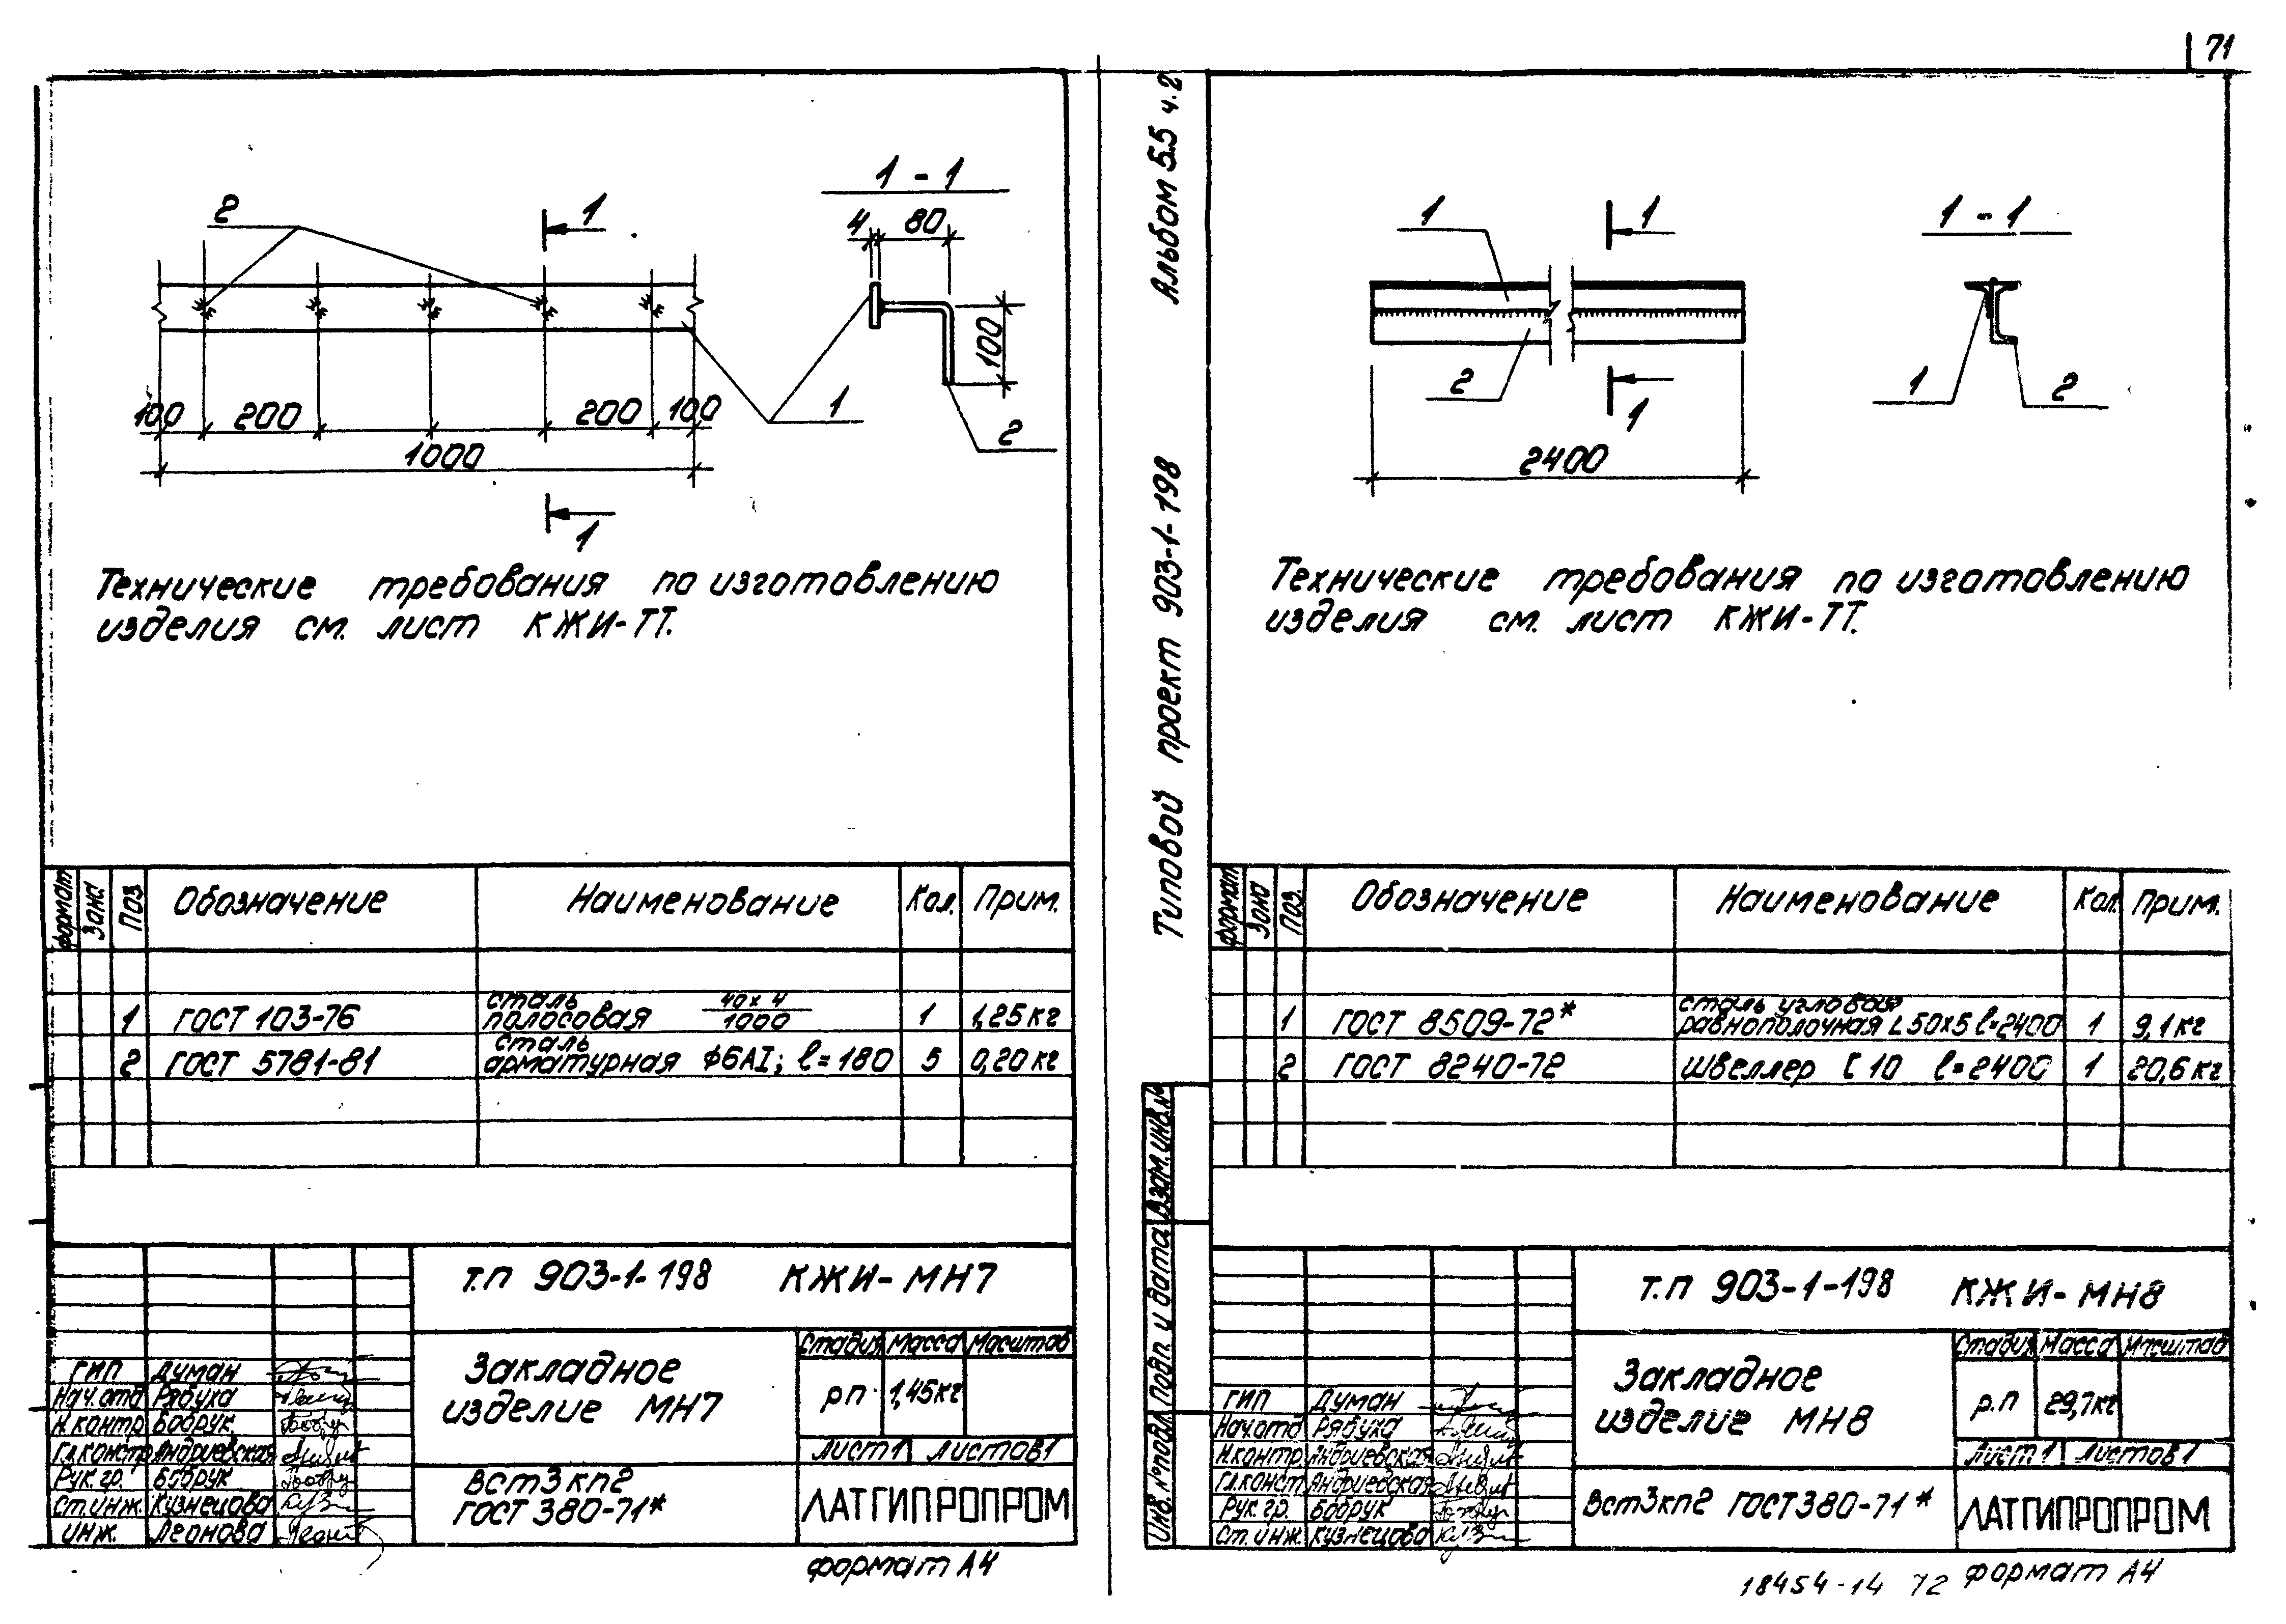 71
2
1
1
1 - 1
4
80
100
1
2
100
200
200
100
1000
Технические требования по изготовлению
изделия см. лист КЖИ-ТТ.
формат
Зона
Поз
Обозначение
Наименование
Кол.
Прим.
1
ГОСТ 103-76
сталь
полосовая 40х4
1000
1
1,25 кг
2
ГОСТ 5781-81
сталь
арматурная ф6АI; ℓ=180
5
0,20 кг
т.п 903-1-198 КЖИ-МН7
Закладное
изделие МН7
Стадия
Масса
Масштаб
рп
1,45кг
Лист 1
Листов 1
ГИП Думан
Нач.отд Рябуха
Н.контр Бобрук
Гл.констр Андриевская
Рук.гр. Бобрук
Ст.инж. Кузнецова
инж. Леонова
Вст3кп2
ГОСТ 380-71*
ЛАТГИПРОПРОМ
формат А4
Альбом 5.5 ч.2
Типовой проект 903-1-198
Взам.инв.№
Подп. и дата
Инв.№подл.
1
1
1
2
2400
1 - 1
1
2
Технические требования по изготовлению
изделия см. лист КЖИ-ТТ.
формат
Зона
Поз.
Обозначение
Наименование
Кол.
Прим.
1
ГОСТ 8509-72*
сталь угловая
равнополочная L50х5 ℓ=2400
1
9,1 кг
2
ГОСТ 8240-72
Швеллер [ 10 ℓ=2400
1
20,6 кг
т.п 903-1-198 КЖИ-МН8
Закладное
изделие МН8
Стадия
Масса
Масштаб
р.п
29,7кг
Лист 1
Листов 1
ГИП Думан
Нач.отд Рябуха
Н.контр. Андриевская
Гл.конст. Андриевская
Рук.гр. Бобрук
Ст.инж. Кузнецова
Вст3кп2 ГОСТ 380-71*
ЛАТГИПРОПРОМ
18454-14 72 формат А4